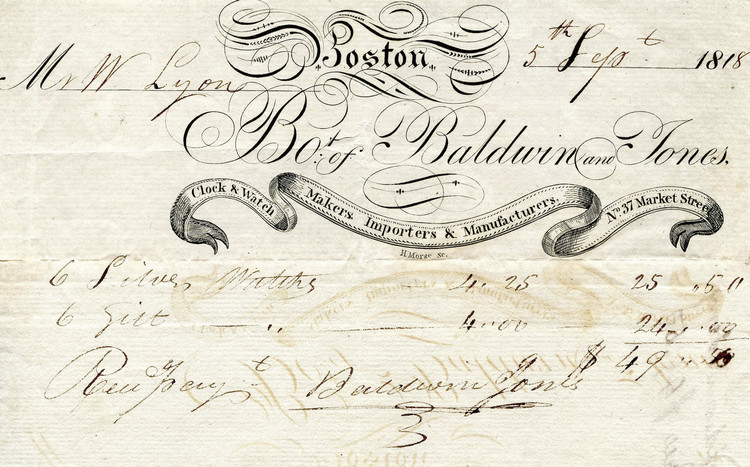 Boston. 5th Sept 1818
Mr W Lyon
Bot. of Baldwin and Jones.
Clock & Watch Makers. Importers & Manufacturers. No. 37 Market Street
H. Morse sc.
6 Silver Watches 4.25 25.50
6 Gilt " 4.00 24.00
Recd Payt $49.50
Baldwin Jones